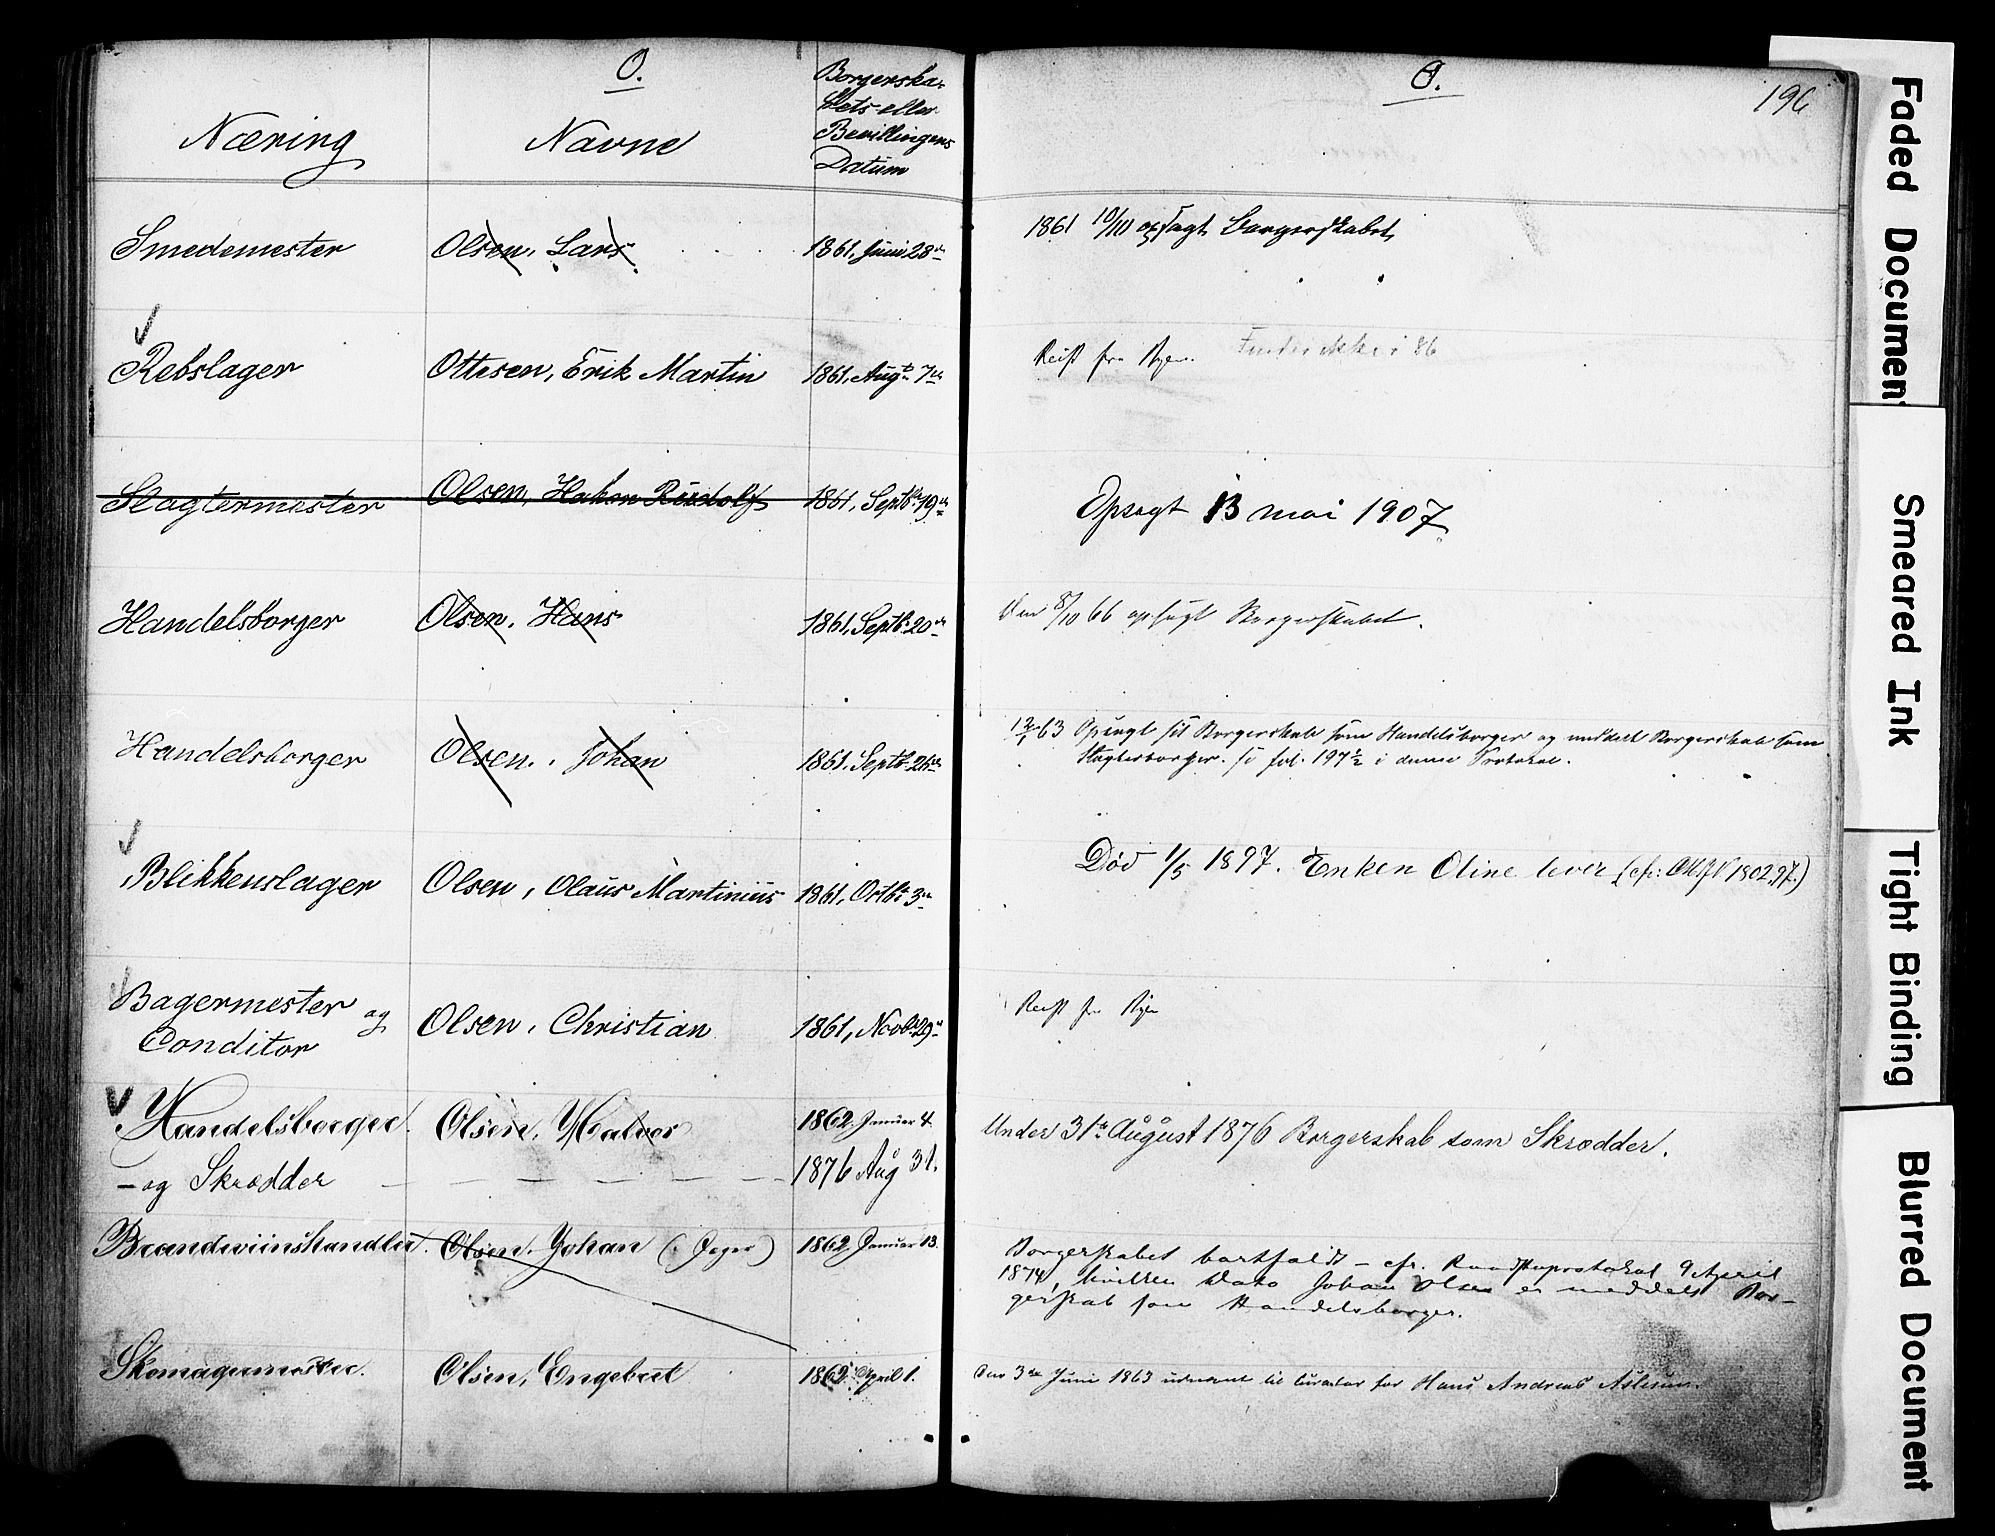 O.
Næring
Navne
Borgerska-
bets eller
Bevillingens
Datum
O.
196
Smedemester Olsen, Lars 1861, Juni 28de 1861 10/10 opsagt Borgerskabet
Rebslager Ottesen, Erik Martin 1861, Augt 7de Reist fra Byen. Frederikke i 86
Slagtermester Olsen, Hakon Rudolf 1861, Septbr 19de Opsagt 13 mai 1907
Handelsborger Olsen, Hans 1861, Septbr 20de Den 8/10 66 opsagt Borgerskabet.
Handelsborger Olsen, Johan 1861, Septbr 25de 63 Opsagt sit Borgerskab som Handelsborger og meddelt Borgerskab som
Slagterborger. se fol. 197½ i denne Protokol.
Blikkenslager Olsen, Olaus Martinius 1861, Octbr 3die Død 1/5 1897. Enken Oline lever (cfr: 1802,97.)
Bagermester og
Conditor Olsen, Christian 1861, Novbr 29de Reist fra Byen
Handelsborger Olsen, Halvor 1862, Januar 4. Under 31te August 1876 Borgerskab som Skrædder.
- og Skrædder 1876 Aug 31.
Brændeviinshandler. Olsen, Johan (: Jeger) 1862, Januar 13. Borgerskabet bortfaldt - cfr. 9 April
1874, hvilken Dato Johan Olsen er meddelt Bor-
gerskab som Handelsborger.
Skomagermester. Olsen, Engebret 1862, April 1. Den 3die Juni 1863 udnævnt til Curator for Hans Andreas
Faded Document
Smeared Ink
Tight Binding
Blurred Document